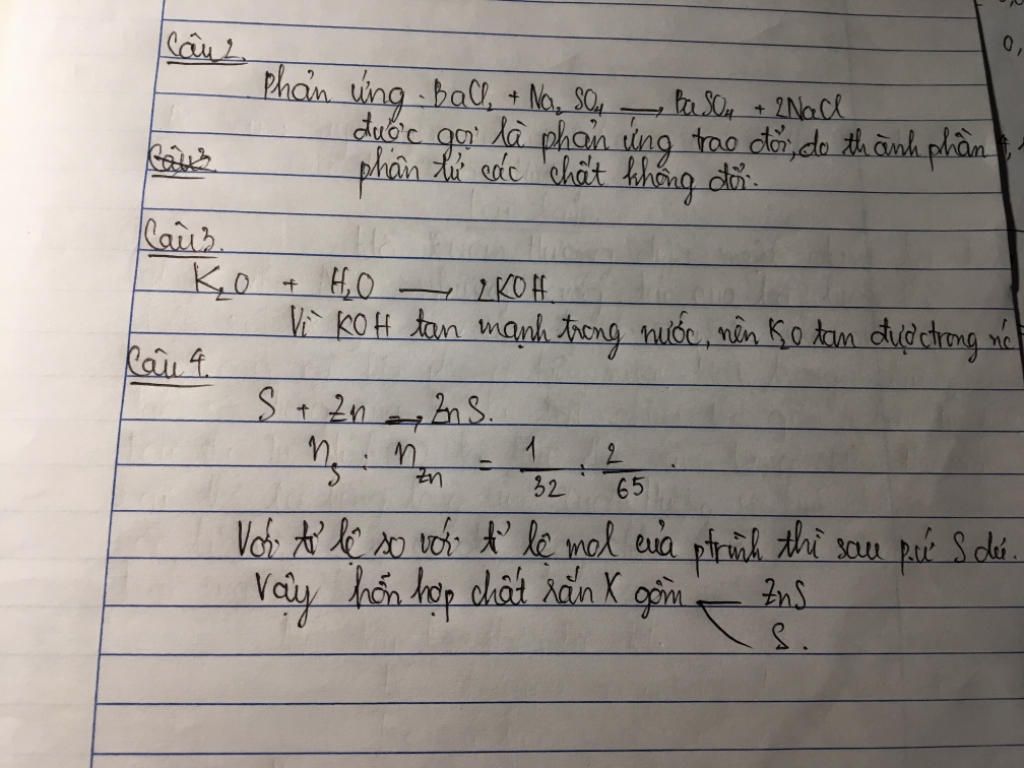 Câu 2.
phản ứng. BaCl₂ + Na₂SO₄ → BaSO₄ + 2NaCl
được gọi là phản ứng trao đổi, do thành phần
Câu 3
phân tử các chất không đổi.
Câu 3.
K₂O + H₂O → 2KOH.
Vì KOH tan mạnh trong nước, nên K₂O tan được trong nc
Câu 4.
S + Zn → ZnS.
n_S : n_Zn = 1/32 : 2/65 .
Với tỉ lệ so với tỉ lệ mol của ptrình thì sau p.ứ S dư.
Vậy hỗn hợp chất rắn X gồm ZnS
S.
0,